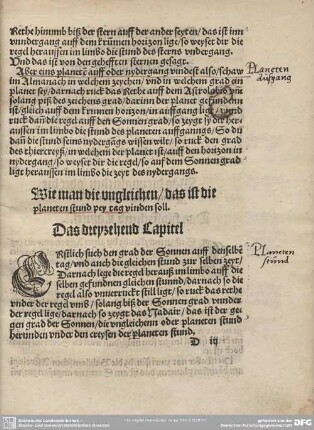 Rethe hinumb biß der stern auff der ander seyten/das ist im
vnndergang auff den krümen horizon lige/so weyset dir die
regel heraussen im limbo die stund des sterns vndergang.
Vnd das ist von den gehefften sternen gesagt.
Aber eins planete auff oder nydergang vindest also/schaw
im Almanach in welchem zeychen/vnd in welchem grad ein
planet sey/darnach ruck das Rethe auff dem Astrolabio
solang piß das zeichens grad/darinn der planet gefunden
ist/gleich auff dem krummen horizon/im auffgang
ruck dan die regel auff den Grad der Sonnen/so zeygt sy dir her-
aussen im limbo die stund des planeten auffgangs/So du
dan die stund seins nydergangs wissen wilt/so ruck den grad
des thiercreyß/in welchem der planet ist/auff den horizon im
nydergang/so weyset dir die regel/so auff dem Sonnen grad
ligt heraussen im limbo die zeyt des nydergangs.
Planeten
Aufgang
Wie man die vngleichen/das ist die
planeten stund pey tag vinden soll.
Das dreyzehend Capitel
ERstlich such den grad der Sonnen auff denselben
tag/vnd auch die gleichen stund zur selben zeyt/
Darnach lege die regel herauß im limbo auff die
selben gefundnen gleichen stunnd/darnach so die
regel also vnuerruckt still ligt/so ruck das rethe
vnder der regel vmb/solang biß der Sonnen grad vnnder
der regel lige/darnach so zeygt das Nadair/das ist der ge-
gen grad der Sonnen/die vngleichenn oder planeten stund
herinden vnder den creysen der planeten stund.
Planeten
stund
D iij